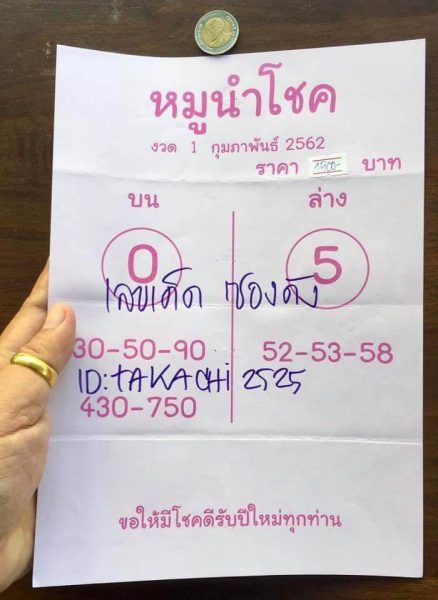 หมูนำโชค
งวด 1 กุมภาพันธ์ 2562
ราคา 1500- บาท
บน ล่าง
0 5
เลขเด็ด ซองดัง
30-50-90 52-53-58
ID:tAKACHi 2525
430-750
ขอให้มีโชคดีรับปีใหม่ทุกท่าน